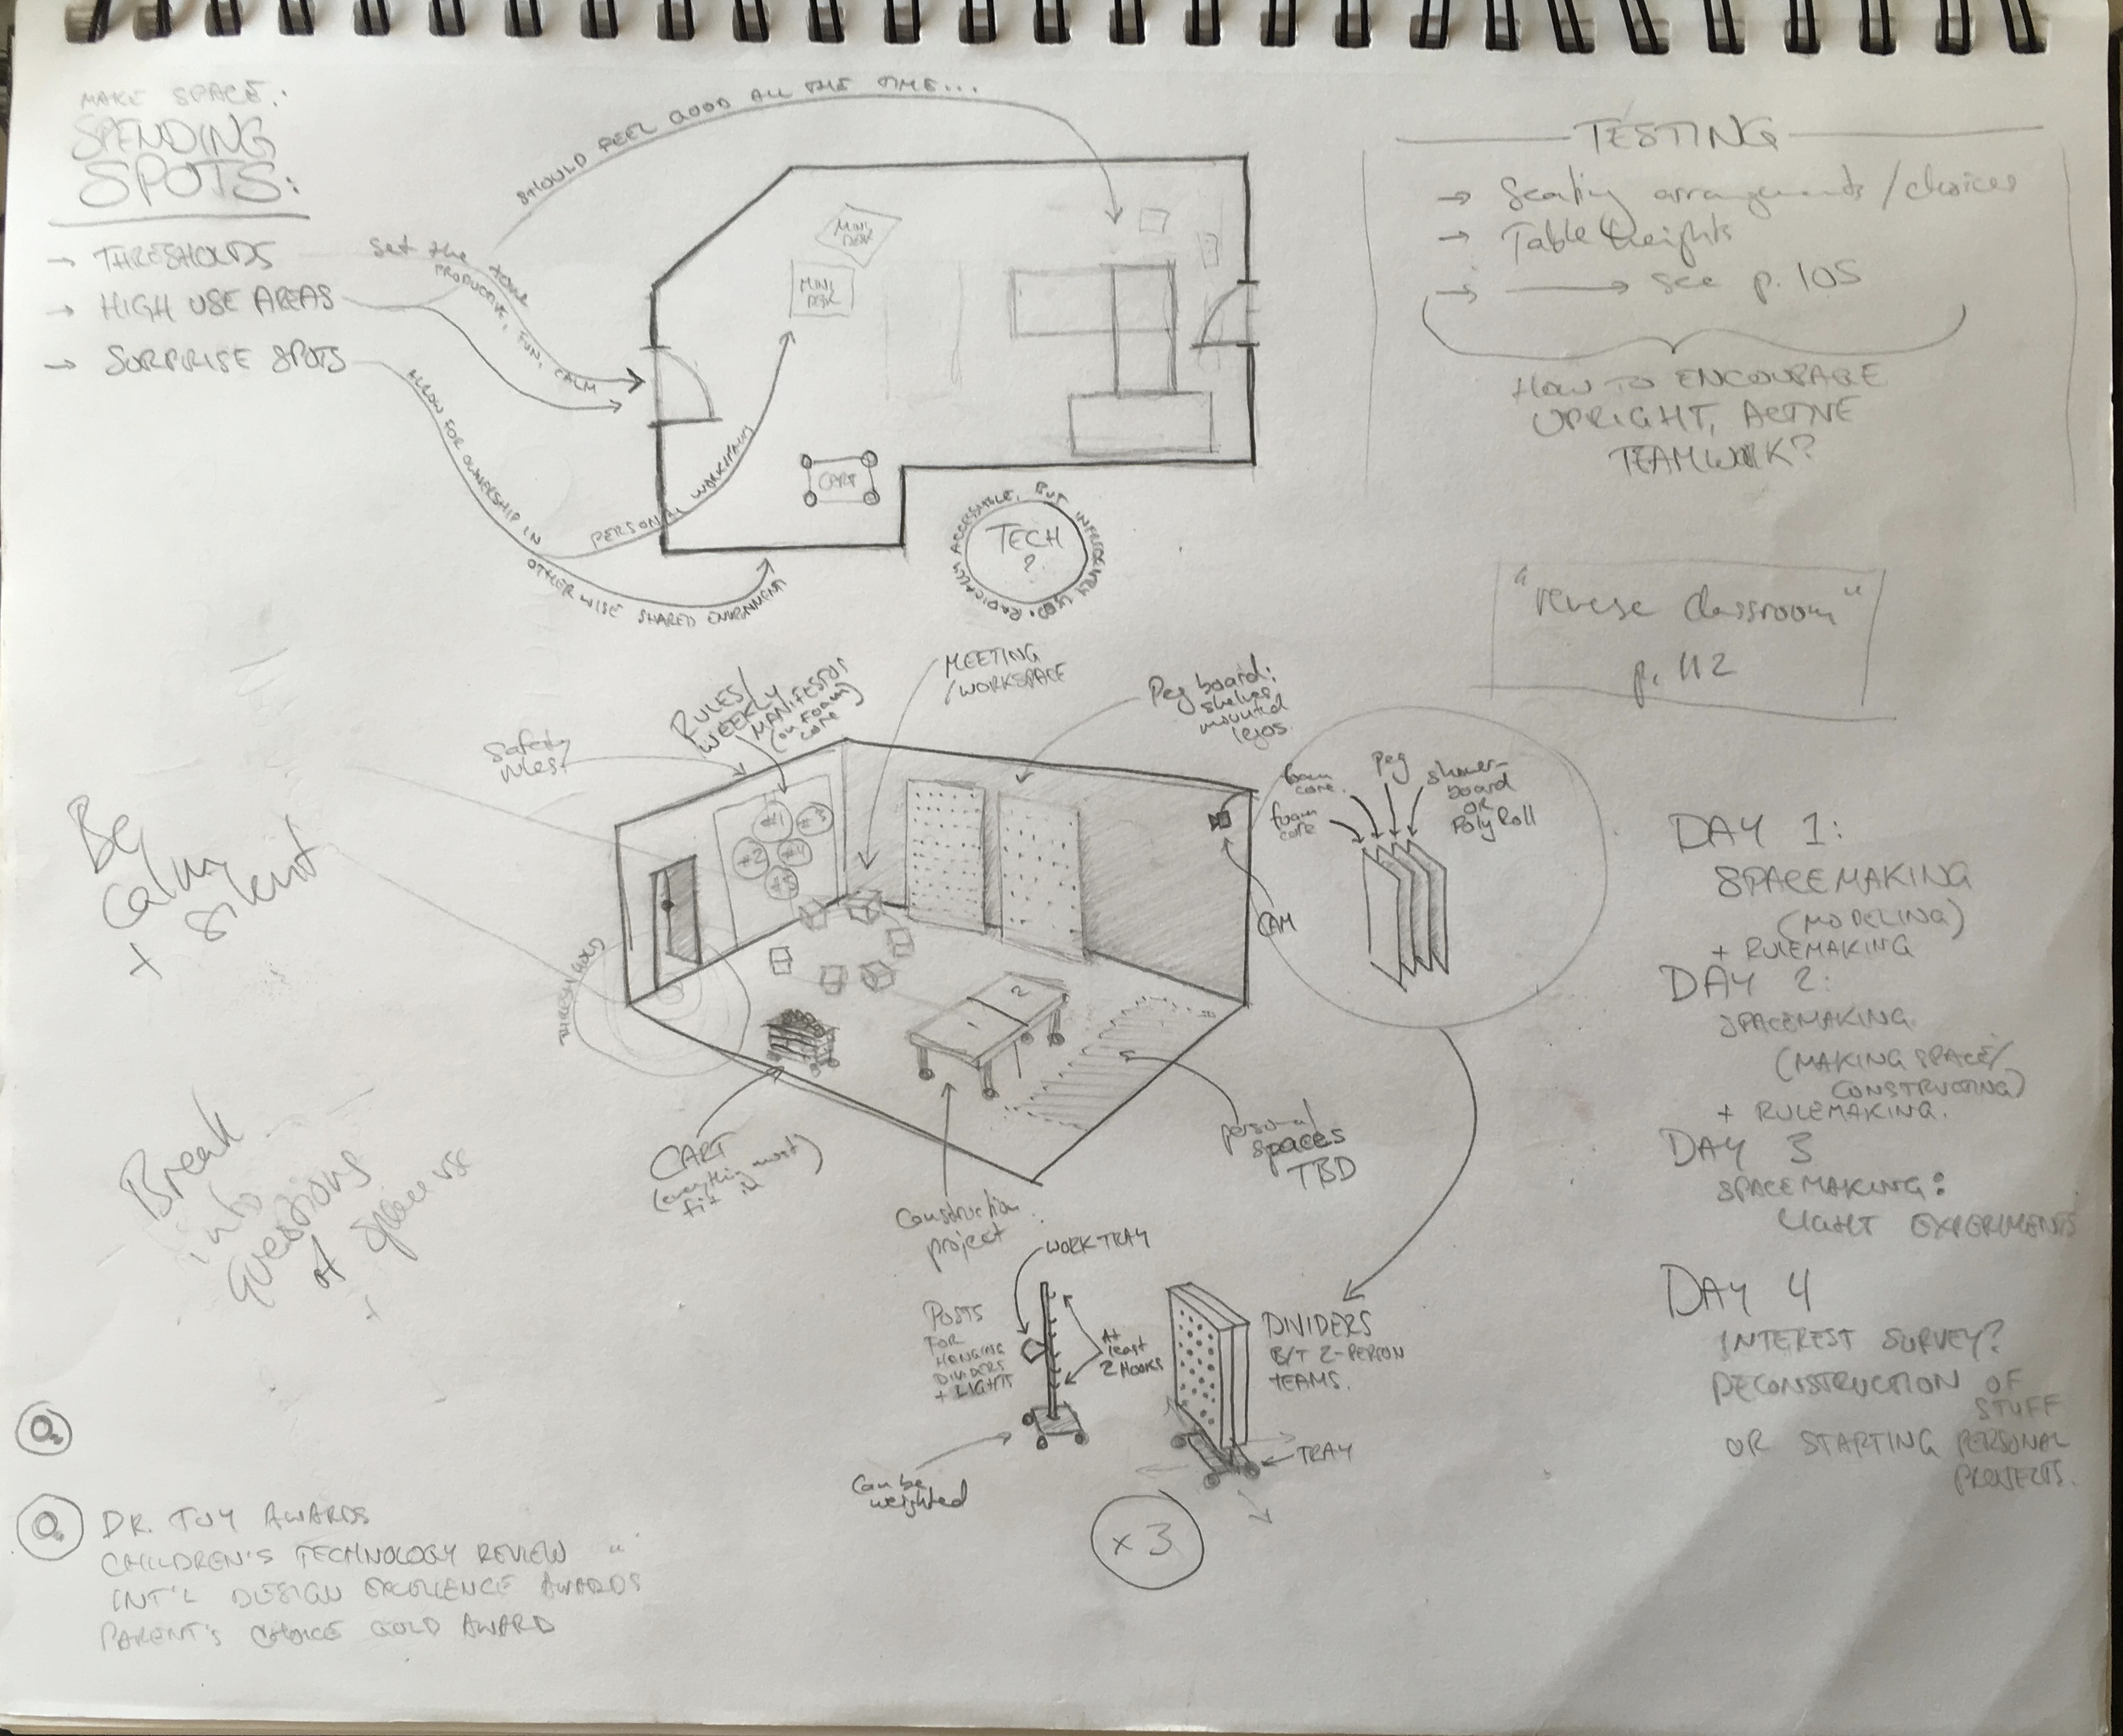 MAKE SPACE:
SPENDING
SPOTS:
→ THRESHOLDS
→ HIGH USE AREAS
→ SURPRISE SPOTS
SHOULD FEEL GOOD ALL THE TIME...
Set the tone
PRODUCTIVE, FUN, CALM
ALLOW FOR OWNERSHIP IN
OTHERWISE SHARED ENVIRNMENT
PERSONAL WORKSPACES
MINI
DESK
MINI
DESK
CART
TECH
?
RADICALLY ACCESSIBLE, BUT INFREQUENTLY USED.
TESTING
→ Seating arrangements/choices
→ Table heights
→ → see p. 105
HOW TO ENCOURAGE
UPRIGHT, ACTIVE
TEAMWORK?
"reverse classroom"
p. 112
Safety
rules?
RULES/
WEEKLY
MANIFESTOS
(on foam
core)
MEETING
/WORKSPACE
Peg board:
shelves,
mounted
legos.
#1
#3
#2
#4
#5
THRESHOLD
CAM
foam
core
foam
core
Peg
shower-
board
OR
Poly Roll
1
2
CART
(everything must
fit in)
Construction
project
personal
spaces
TBD
Be
Calm
+ silent
Break
into
questions
of
+ space use
WORK TRAY
POSTS
FOR
HANGING
DIVIDERS
+ LIGHTS
At
least
2 HOOKS
Can be
weighted
DIVIDERS
B/T 2-PERSON
TEAMS.
← TRAY
×3
DAY 1:
SPACEMAKING
(MODELING)
+ RULEMAKING
DAY 2:
SPACEMAKING
(MAKING SPACE/
CONSTRUCTING)
+ RULEMAKING.
DAY 3
SPACEMAKING:
LIGHT EXPERIMENTS
DAY 4
INTEREST SURVEY?
DECONSTRUCTION OF
STUFF
OR STARTING PERSONAL
PROJECTS.
DR. TOY AWARDS
CHILDREN'S TECHNOLOGY REVIEW "
INT'L DESIGN EXCELLENCE AWARDS
PARENT'S CHOICE GOLD AWARD